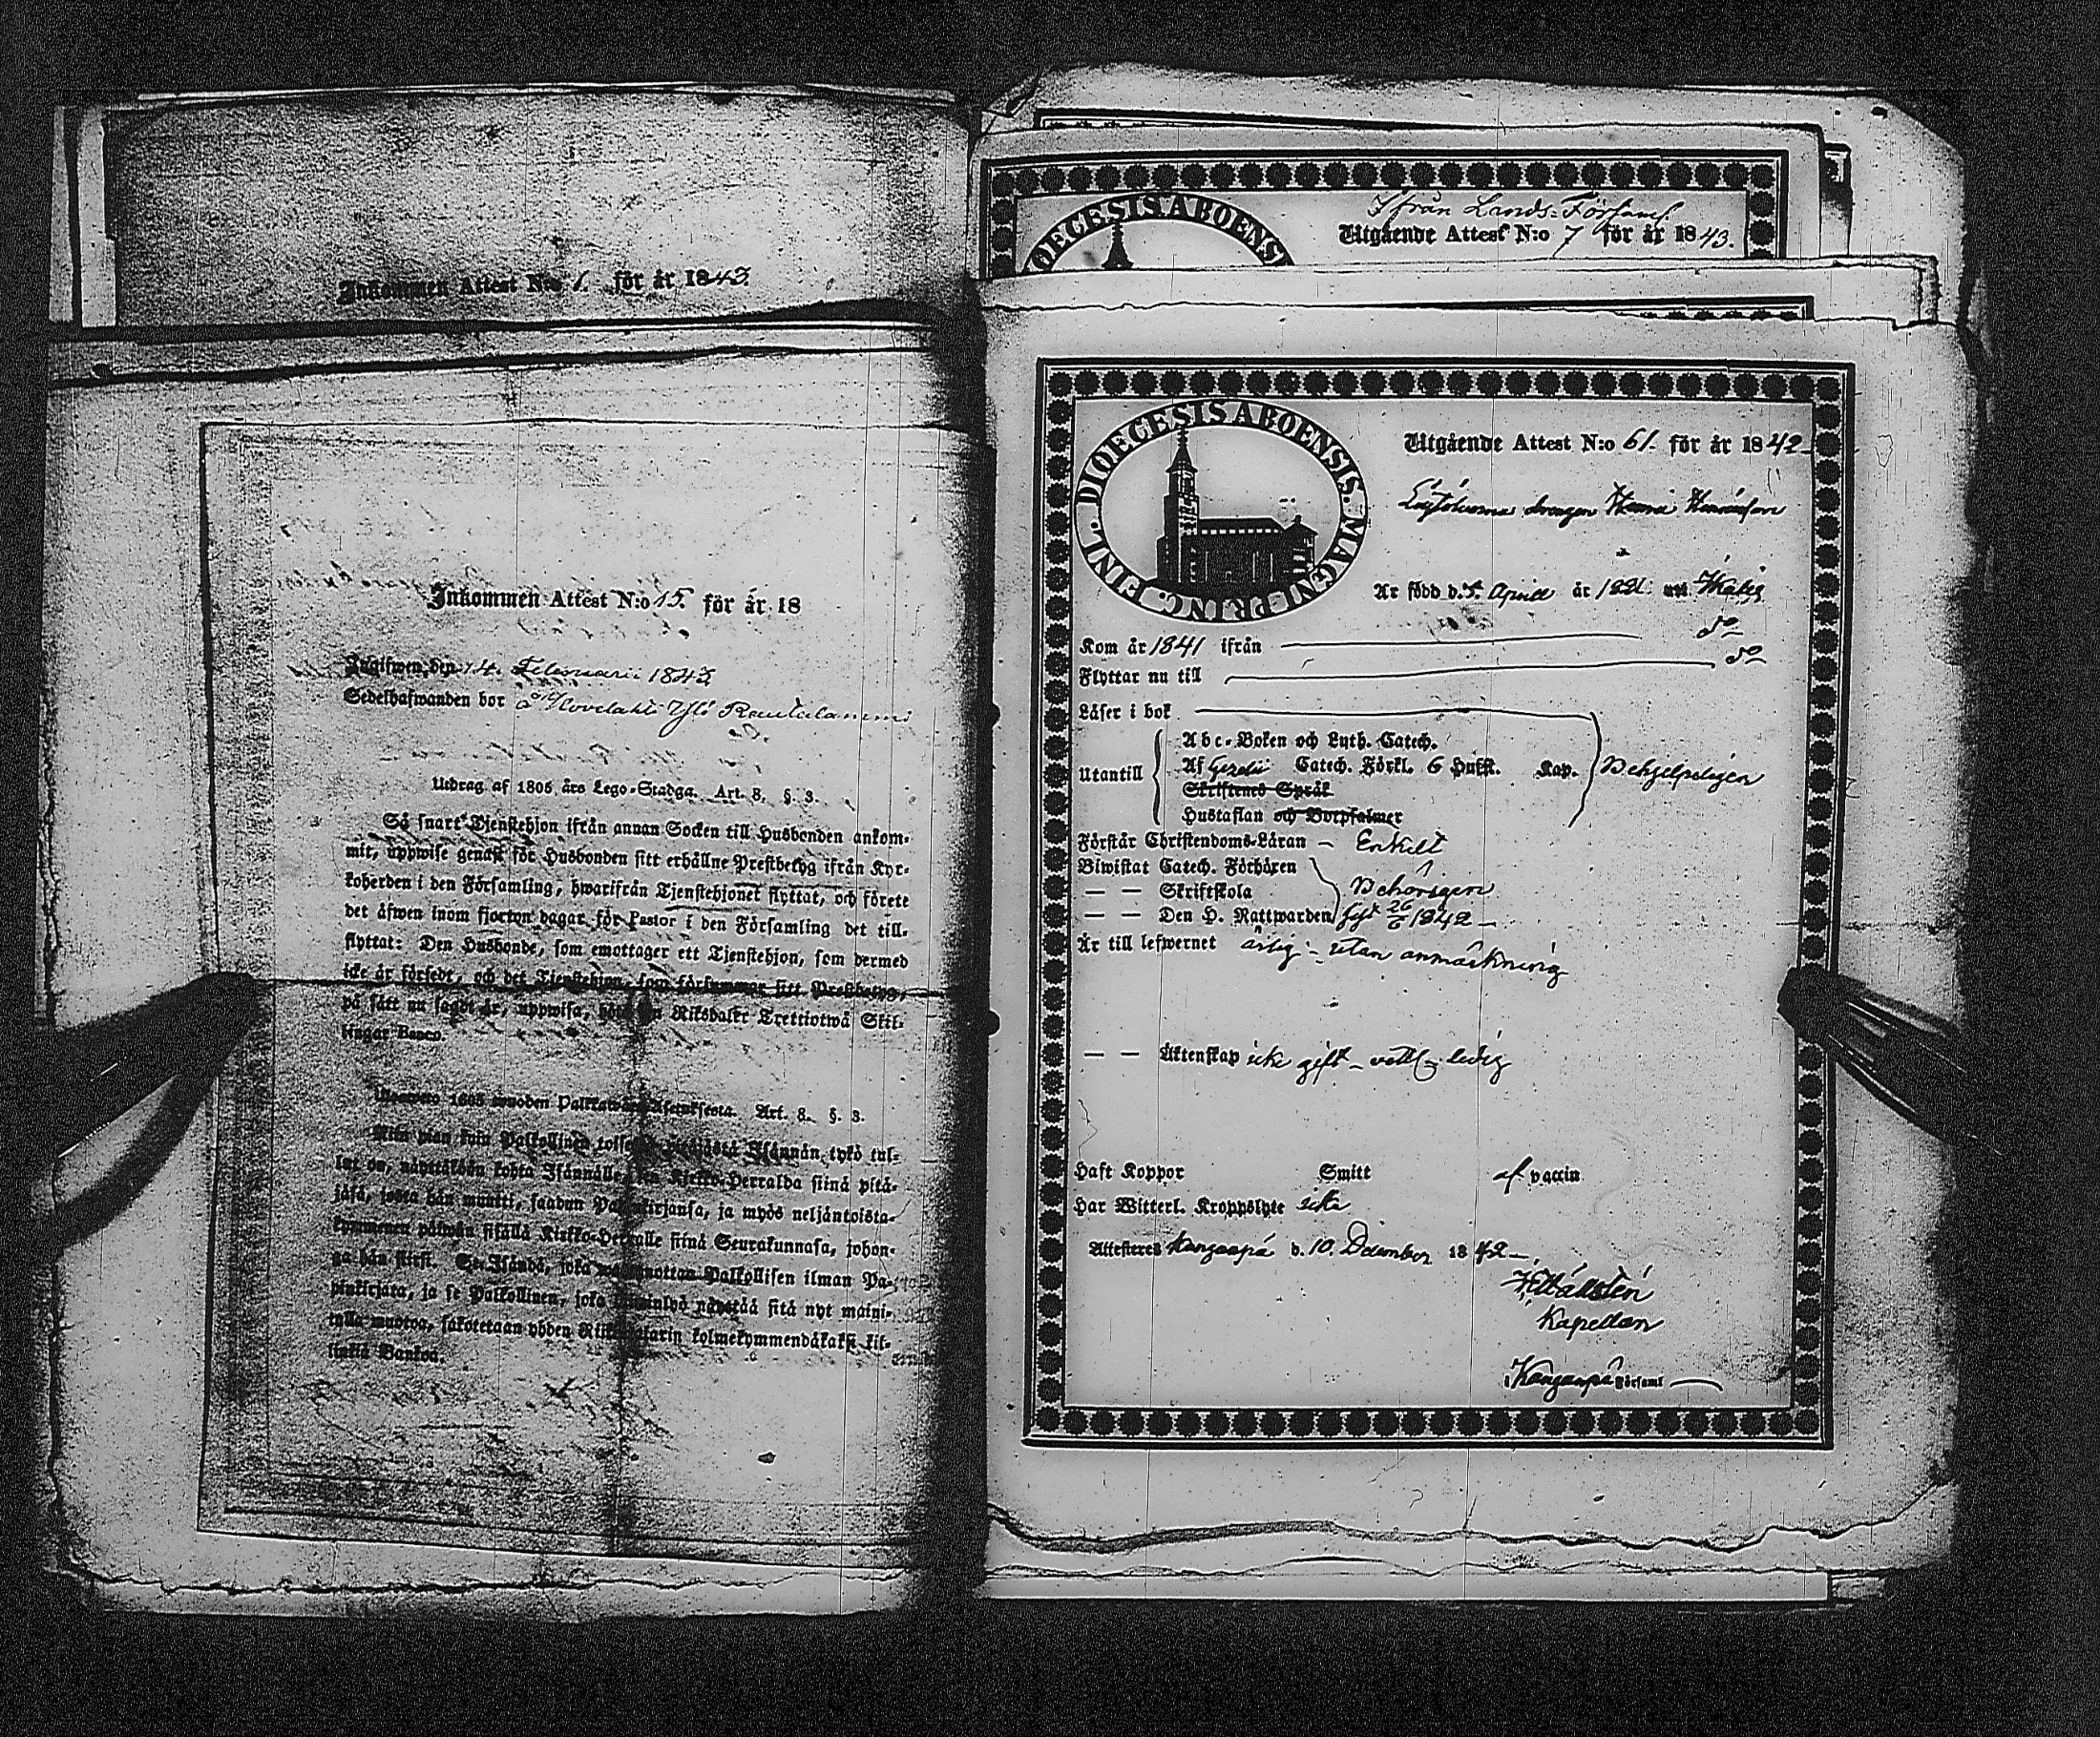 Inkommen Attest N:o 1. för år 1843.
Inkommen Attest N:o 15. för år 18
Ingifwen, den 14. Februarii 1843.
Sedelhafwanden bor å Ylö Rautalammi
Utdrag af 1805 års Lego-Stadga. Art. 8. §. 3.
Så snart Tjenstehjon ifrån annan Socken till Husbonden ankom-
mit, uppwise genast för Husbonden sitt erhållne Prestbetyg ifrån Kyr-
koherden i den Församling, hwarifrån Tjenstehjonet flyttat, och förete
det äfwen inom fjorton dagar för Pastor i den Församling det till-
flyttat: Den Husbonde, som emottager ett Tjenstehjon, som dermed
icke är försedt, och det Tjenstehjon, som försummar sitt Prestbetyg,
på sätt nu sagdt är, uppwisa, böte en Riksdaler Trettiotwå Skil-
lingar Banco.
1805 wuoden Palkkawäen Asetuksesta. Art. 8. §. 3.
Niin pian kuin Palkollinen toisesta pitäjästä Isännän tykö tul-
lut on, näyttäköön kohta Isännälle sen Kirkko-Herralda siinä pitä-
jäsä, josta hän muutti, saadun Papinkirjansa, ja myös neljäntoista-
kymmenen päiwän sisällä Kirkko-Herralle siinä Seurakunnasa, johon-
ga hän siirsi. Se Isändä, joka wastaanottaa Palkollisen ilman Pa-
pinkirjata, ja se Palkollinen, joka laiminlyö näyttää sitä nyt maini-
tulla muotoa, sakotetaan yhden Riikintalarin kolmekymmendäkaksi kil-
linkiä Bankoa.
DIOECESIS ABOENSI
Ifrån Lands-Församl.
Utgående Attest N:o 7 för år 1843.
DIOECESIS ABOENSIS. MAGNI PRINC. FINL.
Utgående Attest N:o 61. för år 1842
drengen
Är född d. 5. Aprill år 1821
Kom år 1841 ifrån do
Flyttar nu till do
Läser i bok
Abc-Boken och Luth. Catech.
Utantill Af Gezelii Catech. Förkl. 6 Hufst. Kap. Behjelpeligen
Skriftenes Språk
Hustaflan och Botpsalmer
Förstår Christendoms-Läran – Enkelt
Biwistat Catech. Förhören
— — Skriftskola Behörigen
— — Den H. Nattwarden 26/6 1842
Är till lefwernet ärlig – utan anmärkning
— — Äktenskap icke gift – ledig
Haft Koppor Smitt af vaccin
Har Witterl. Kroppslyte icke
Attesteras Kangaspä d. 10. December 1842
Kapellan
i Kangaspä Församl